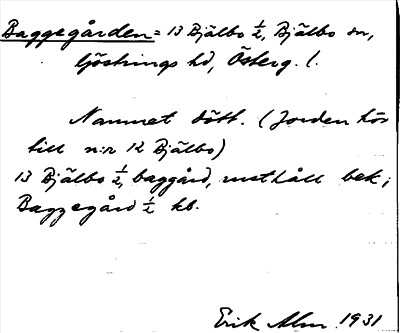 Baggegården = 13 Bjälbo ½, Bjälbo sn,
Göstrings hd, Österg. l.
Namnet dött. (Jorden hör
till n:r 12 Bjälbo)
13 Bjälbo ½, baggård, rusthåll bek;
Baggegård ½ kb.
Erik Alm 1931